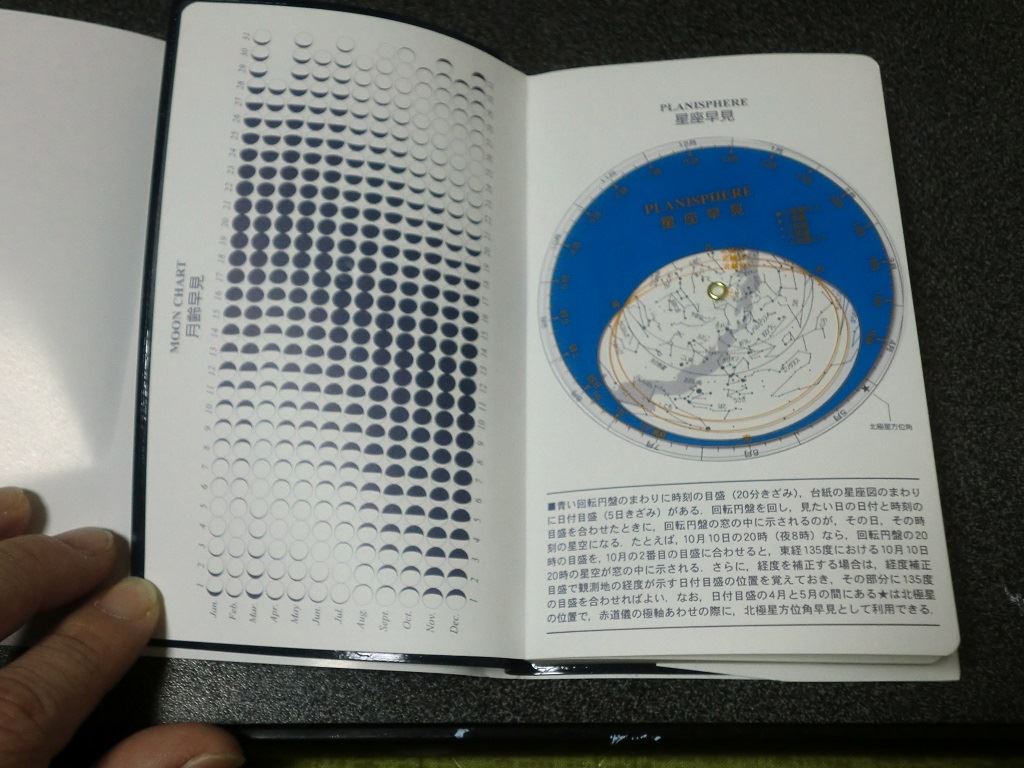 MOON CHART
月齢早見
1 2 3 4 5 6 7 8 9 10 11 12 13 14 15 16 17 18 19 20 21 22 23 24 25 26 27 28 29 30 31
Jan.
Feb.
Mar.
Apr.
May
Jun.
Jul.
Aug.
Sept.
Oct.
Nov.
Dec.
1 2 3 4 5 6 7 8 9 10 11 12 13 14 15 16 17 18 19 20 21 22 23 24 25 26 27
PLANISPHERE
星座早見
PLANISPHERE
星座早見
12月
1月
11月
4月
5月
6月
7月
★
北極星方位角
■青い回転円盤のまわりに時刻の目盛（20分きざみ），台紙の星座図のまわり
に日付目盛（5日きざみ）がある．回転円盤を回し，見たい日の日付と時刻の
目盛を合わせたときに，回転円盤の窓の中に示されるのが，その日，その時
刻の星空になる．たとえば，10月10日の20時（夜8時）なら，回転円盤の20
時の目盛を，10月の2番目の目盛に合わせると，東経135度における10月10日
20時の星空が窓の中に示される．さらに，経度を補正する場合は，経度補正
目盛で観測地の経度が示す日付目盛の位置を覚えておき，その部分に135度
の目盛を合わせればよい．なお，日付目盛の4月と5月の間にある★は北極星
の位置で，赤道儀の極軸あわせの際に，北極星方位角早見として利用できる．